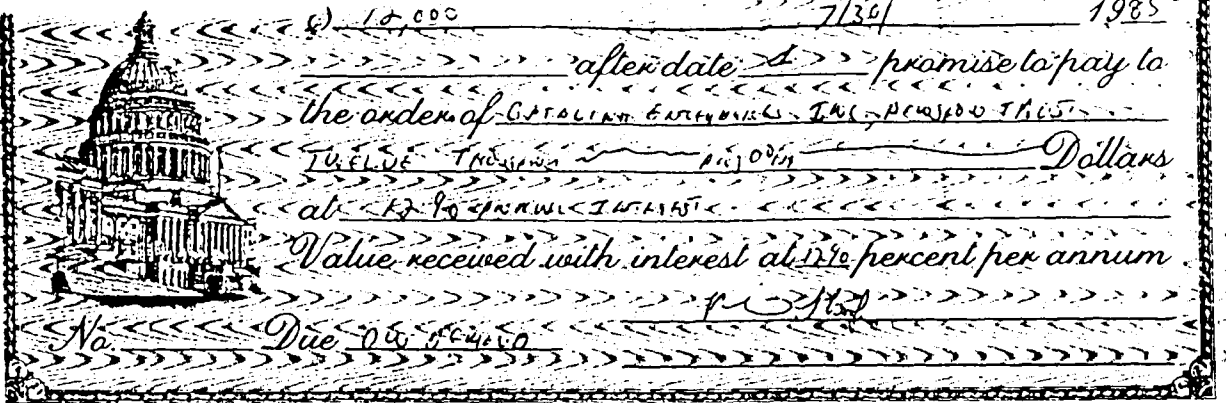 12,000 7/30/ 1985
after date I promise to pay to
the order of Catalina Enterprises Inc, Pension Trust
Twelve Thousand Dollars
at 12% Annual Interest
Value received with interest at 12% percent per annum
No. Due On Demand